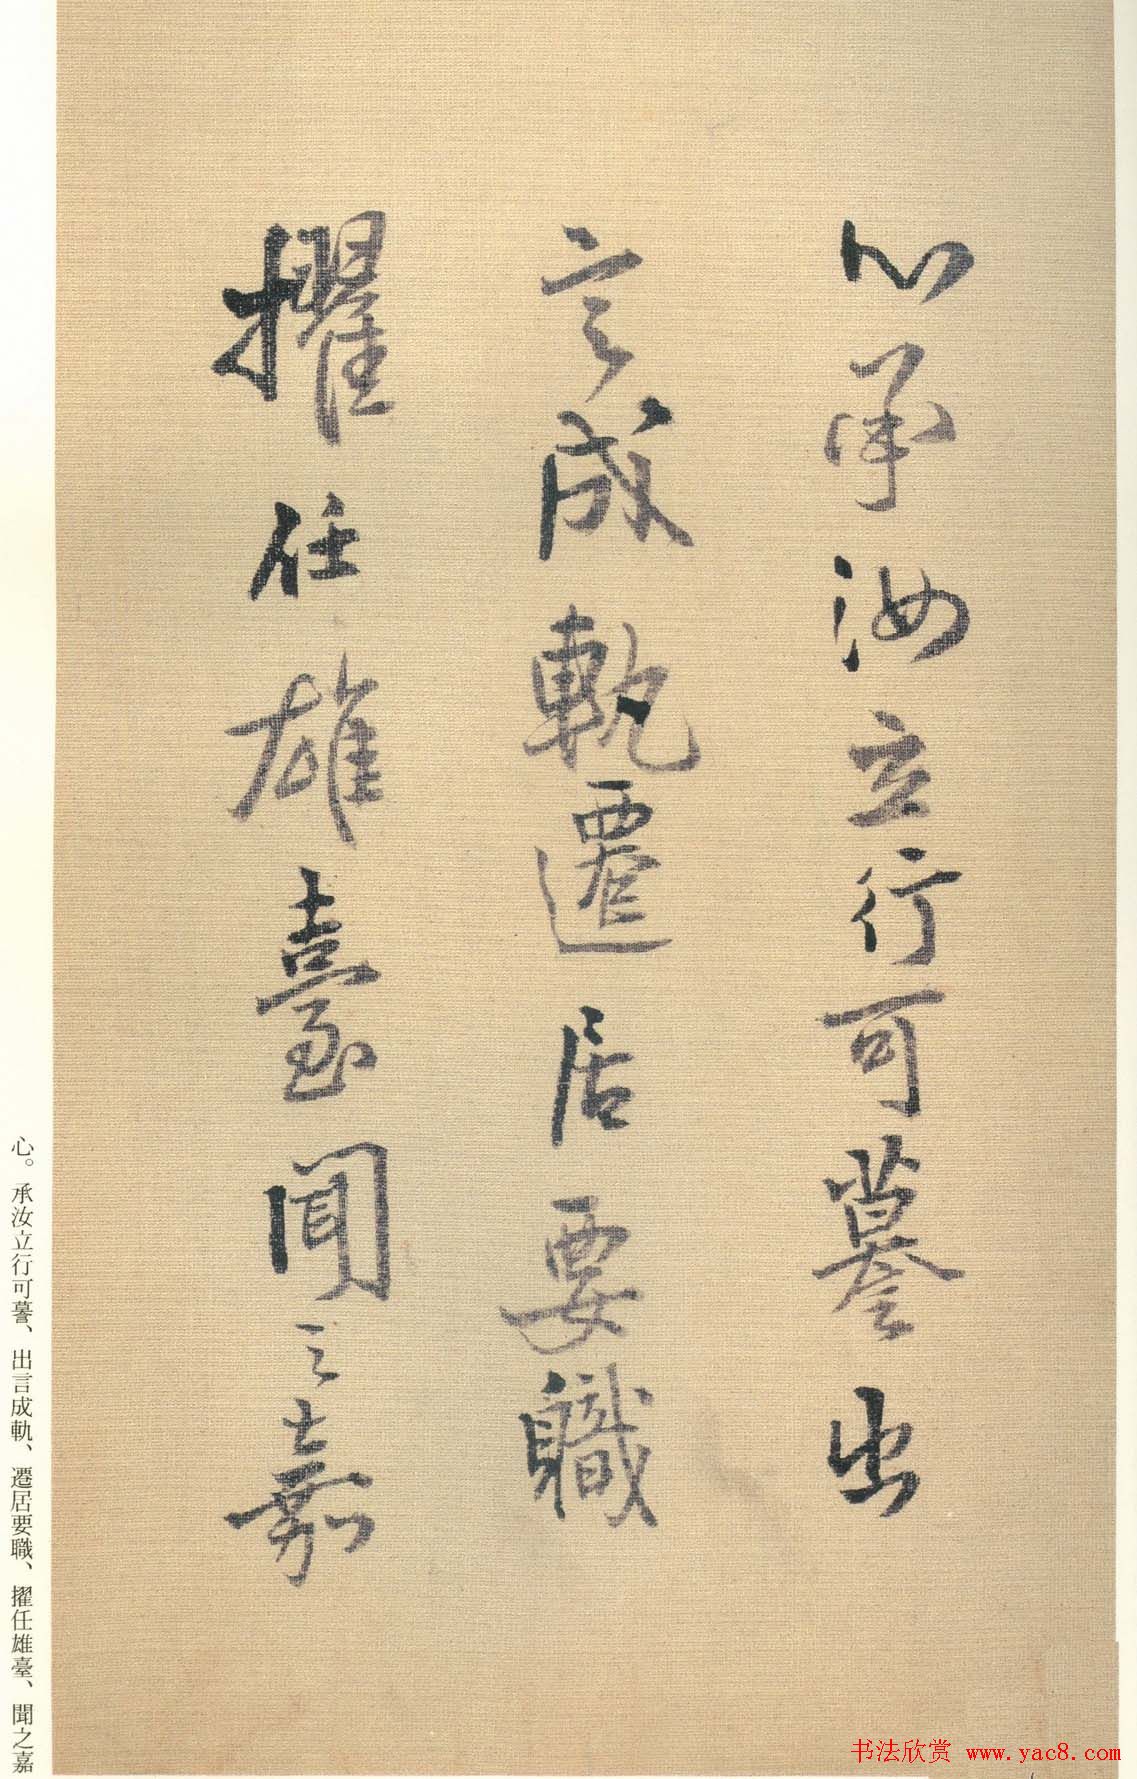 心承汝立行可謩出
言成軌遷居要軄
擢任雄臺聞之嘉
心。承汝立行可謩、出言成軌、遷居要職、擢任雄臺、聞之嘉
书法欣赏 www.yac8.com